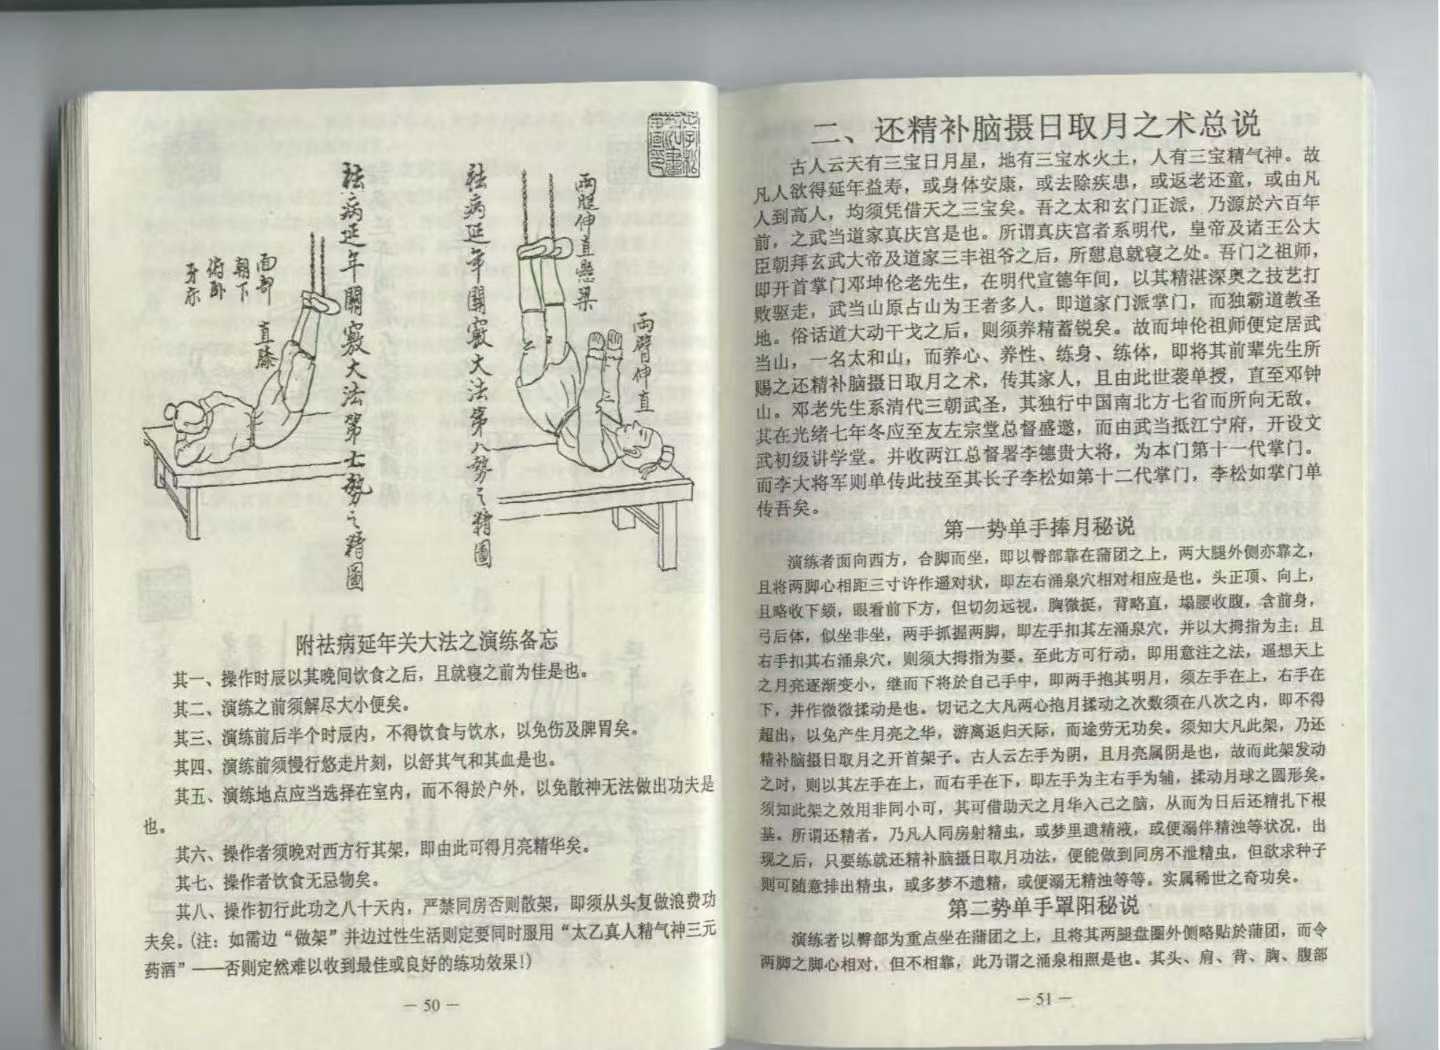 祛病延年關竅大法第七勢之精圖
面部
朝下
俯卧
牙床
直膝
兩腿伸直懸梁
祛病延年關竅大法第八勢之精圖
兩臂伸直
附祛病延年关大法之演练备忘
其一、操作时辰以其晚间饮食之后，且就寝之前为佳是也。
其二、演练之前须解尽大小便矣。
其三、演练前后半个时辰内，不得饮食与饮水，以免伤及脾胃矣。
其四、演练前须慢行悠走片刻，以舒其气和其血是也。
其五、演练地点应当选择在室内，而不得於户外，以免散神无法做出功夫是
也。
其六、操作者须晚对西方行其架，即由此可得月亮精华矣。
其七、操作者饮食无忌物矣。
其八、操作初行此功之八十天内，严禁同房否则散架，即须从头复做浪费功
夫矣。(注：如需边“做架”并边过性生活则定要同时服用“太乙真人精气神三元
药酒”——否则定然难以收到最佳或良好的练功效果!)
— 50 —
二、还精补脑摄日取月之术总说
古人云天有三宝日月星，地有三宝水火土，人有三宝精气神。故
凡人欲得延年益寿，或身体安康，或去除疾患，或返老还童，或由凡
人到高人，均须凭借天之三宝矣。吾之太和玄门正派，乃源於六百年
前，之武当道家真庆宫是也。所谓真庆宫者系明代，皇帝及诸王公大
臣朝拜玄武大帝及道家三丰祖爷之后，所憩息就寝之处。吾门之祖师，
即开首掌门邓坤伦老先生，在明代宣德年间，以其精湛深奥之技艺打
败驱走，武当山原占山为王者多人。即道家门派掌门，而独霸道教圣
地。俗话道大动干戈之后，则须养精蓄锐矣。故而坤伦祖师便定居武
当山，一名太和山，而养心、养性、练身、练体，即将其前辈先生所
赐之还精补脑摄日取月之术，传其家人，且由此世袭单授，直至邓钟
山。邓老先生系清代三朝武圣，其独行中国南北方七省而所向无敌。
其在光绪七年冬应至友左宗堂总督盛邀，而由武当抵江宁府，开设文
武初级讲学堂。并收两江总督署李德贵大将，为本门第十一代掌门。
而李大将军则单传此技至其长子李松如第十二代掌门，李松如掌门单
传吾矣。
第一势单手捧月秘说
演练者面向西方，合脚而坐，即以臀部靠在蒲团之上，两大腿外侧亦靠之，
且将两脚心相距三寸许作遥对状，即左右涌泉穴相对相应是也。头正顶、向上，
且略收下颏，眼看前下方，但切勿远视，胸微挺，背略直，塌腰收腹，含前身，
弓后体，似坐非坐，两手抓握两脚，即左手扣其左涌泉穴，并以大拇指为主；且
右手扣其右涌泉穴，则须大拇指为要。至此方可行动，即用意注之法，遥想天上
之月亮逐渐变小，继而下将於自己手中，即两手抱其明月，须左手在上，右手在
下，并作微微揉动是也。切记之大凡两心抱月揉动之次数须在八次之内，即不得
超出，以免产生月亮之华，游离返归天际，而途劳无功矣。须知大凡此架，乃还
精补脑摄日取月之开首架子。古人云左手为阴，且月亮属阴是也，故而此架发动
之时，则以其左手在上，而右手在下，即左手为主右手为辅，揉动月球之圆形矣。
须知此架之效用非同小可，其可借助天之月华入己之脑，从而为日后还精扎下根
基。所谓还精者，乃凡人同房射精虫，或梦里遗精液，或便溺伴精浊等状况，出
现之后，只要练就还精补脑摄日取月功法，便能做到同房不泄精虫，但欲求种子
则可随意排出精虫，或多梦不遗精，或便溺无精浊等等。实属稀世之奇功矣。
第二势单手罩阳秘说
演练者以臀部为重点坐在蒲团之上，且将其两腿盘圈外侧略贴於蒲团，而令
两脚之脚心相对，但不相靠，此乃谓之涌泉相照是也。其头、肩、背、胸、腹部
— 51 —